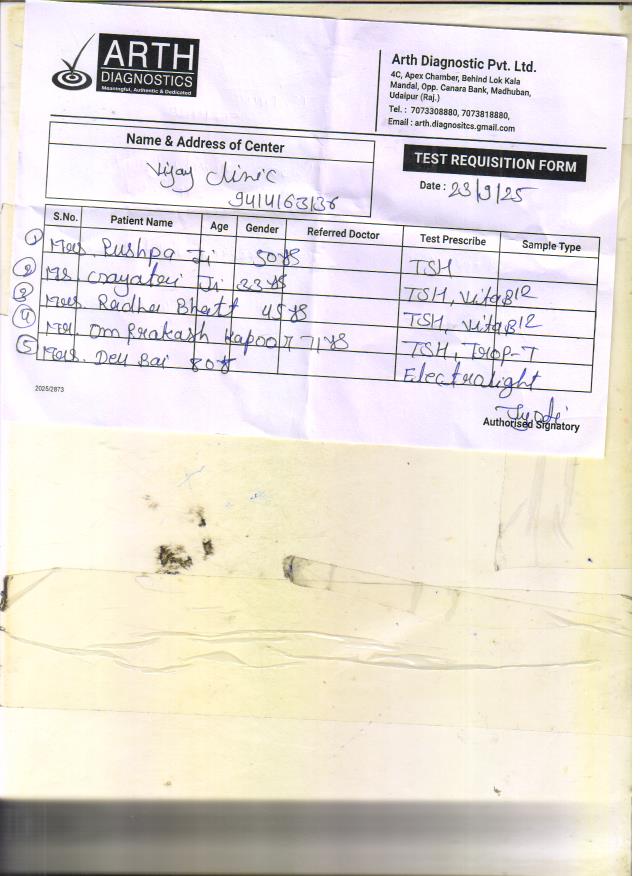 ARTH
DIAGNOSTICS
Meaningful, Authentic & Dedicated
Arth Diagnostic Pvt. Ltd.
4C, Apex Chamber, Behind Lok Kala
Mandal, Opp. Canara Bank, Madhuban,
Udaipur (Raj.)
Tel. : 7073308880, 7073818880,
Email : arth.diagnositcs.gmail.com
Name & Address of Center
Vijay clinic
9414163136
TEST REQUISITION FORM
Date : 23/9/25
S.No. Patient Name Age Gender Referred Doctor Test Prescribe Sample Type
1 Mrs. Pushpa Ji 50 TSH
2 Ms Gayatri Ji 33 TSH, VitaB12
3 Mrs. Radha Bhatt 45 TSH, VitaB12
4 Mr. Om Prakash Kapoor 71 TSH, Trop-T
5 Mrs. Deu Bai 80 Electralight
Jyoti
Authorised Signatory
2025/2873